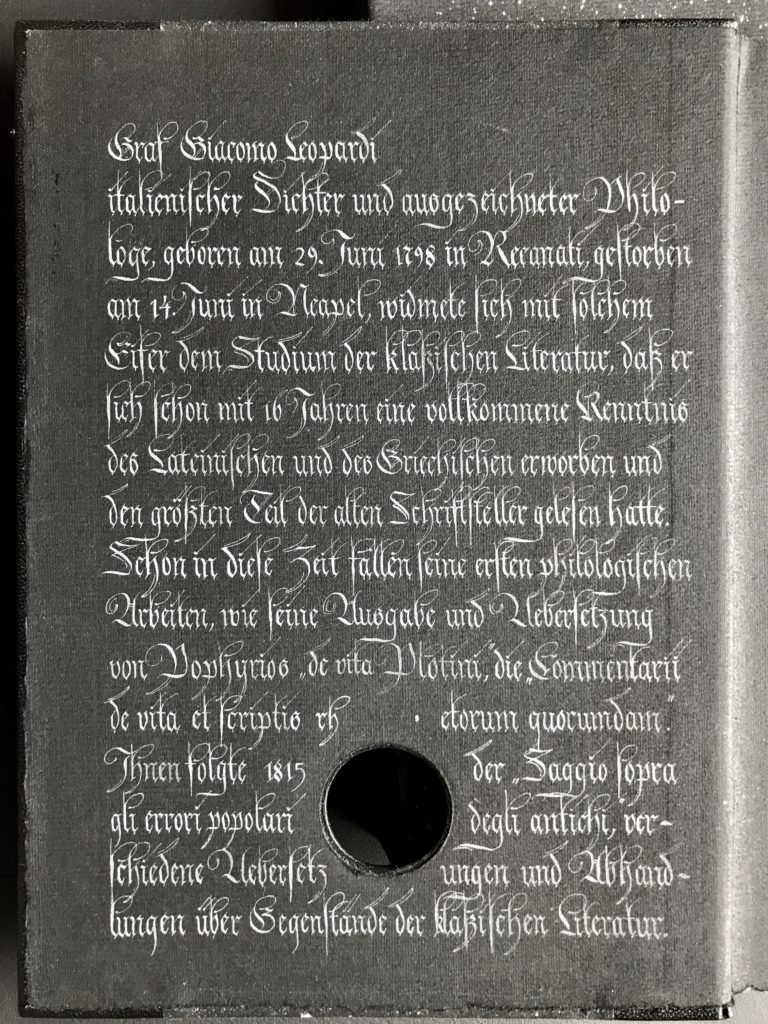 Graf Giacomo Leopardi
italienischer Dichter und ausgezeichneter Philo-
loge, geboren am 29. Juni 1798 in Recanati, gestorben
am 14. Juni in Neapel, widmete sich mit solchem
Eifer dem Studium der klaßischen Literatur, daß er
sich schon mit 16 Jahren eine vollkommene Kenntnis
des Lateinischen und des Griechischen erworben und
den größten Teil der alten Schriftsteller gelesen hatte.
Schon in diese Zeit fallen seine ersten philologischen
Arbeiten, wie seine Ausgabe und Uebersetzung
von Pophyrios „de vita Plotini", die „Commentarii
de vita et scriptis rh · etorum quorumdam".
Ihnen folgte 1815 der „Saggio sopra
gli errori popolari degli antichi, ver-
schiedene Uebersetz ungen und Abhand-
lungen über Gegenstände der klaßischen Literatur.